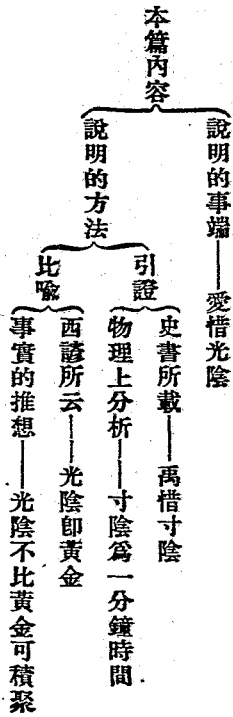 本篇內容
說明的事端——愛惜光陰
說明的方法
引證
史書所載——禹惜寸陰
物理上分析——寸陰爲一分鐘時間
比喻
西諺所云——光陰卽黃金
事實的推想——光陰不比黃金可積聚